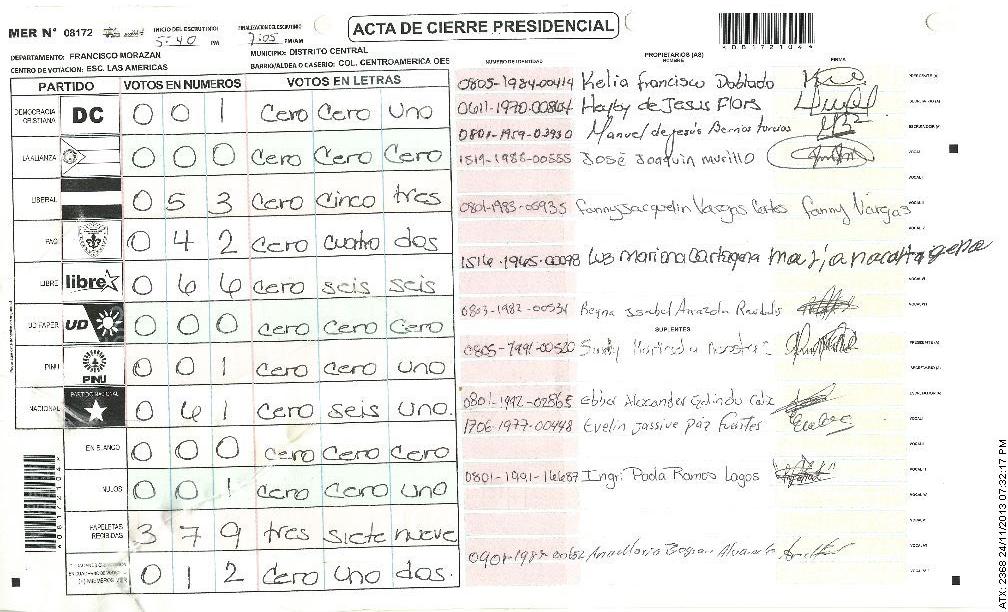 ACTA DE CIERRE PRESIDENCIAL
MER N° 08172
INICIO DEL ESCRUTINIO: 5:40 PM
FINALIZACION DEL ESCRUTINIO 7:05 PM/AM
A08172104X
DEPARTAMENTO: FRANCISCO MORAZAN
MUNICIPIO: DISTRITO CENTRAL
CENTRO DE VOTACION: ESC. LAS AMERICAS
BARRIO/ALDEA O CASERIO: COL. CENTROAMERICA OES
PARTIDO VOTOS EN NUMEROS VOTOS EN LETRAS
DEMOCRACIA CRISTIANA DC 0 0 1 Cero Cero Uno
LA ALIANZA 0 0 0 Cero Cero Cero
LIBERAL 0 5 3 Cero Cinco tres
PAC 0 4 2 Cero cuatro dos
LIBRE libre 0 6 6 cero seis seis
UD FAPER UD 0 0 0 Cero Cero Cero
PINU PINU 0 0 1 Cero Cero uno
NACIONAL PARTIDO NACIONAL 0 6 1 Cero seis uno.
EN BLANCO 0 0 0 Cero Cero Cero
NULOS 0 0 1 Cero Cero Uno
PAPELETAS RECIBIDAS 3 7 9 tres siete nueve
0 1 2 Cero Uno dos.
PROPIETARIOS (AS)
NUMERO DE IDENTIDAD NOMBRE FIRMA
0805-1984-00414 Kelia Francisco Doblado PRESIDENTE (A)
0611-1970-00864 Hayby de Jesus Flors SECRETARIO (A)
0801-1959-03930 Manuel de jesús Berrios ESCRUTADOR (A)
1519-1988-00555 José Joaquin murillo VOCAL I
0801-1983-00935 Fanny Jacquelin Vargas Cortes Fanny Vargas
1516-1965-00098 Luz Mariana Cartagena
0803-1982-00534 Reyna Isabel
SUPLENTES
0805-1991-00520 Sindy PRESIDENTE (A)
SECRETARIO (A)
0801-1992-02865 Ebber Alexander Galindo ESCRUTADOR (A)
1706-1977-00448 Evelin Jassive Páz Fuentes
0801-1991-16687 Ingri Paola Ramos Lagos
0901-1988-00652
ATX: 2368 24/11/2013 07:32:17 PM